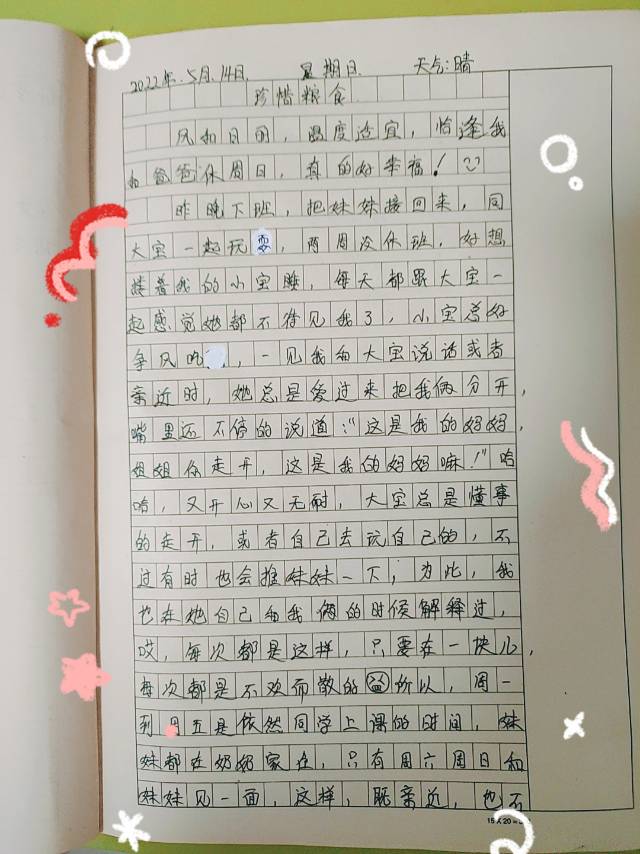 2022年.5月.14日. 星期日. 天气:晴
珍惜粮食
风和日丽，温度适宜，恰逢我
和爸爸休周日，真的好幸福！
昨晚下班，把妹妹接回来，同
大宝一起玩耍，两周没休班，好想
搂着我的小宝睡，每天都跟大宝一
起感觉她都不待见我了，小宝总好
争风吃，一见我和大宝说话或者
亲近时，她总是爱过来把我俩分开，
嘴里还不停的说道："这是我的妈妈，
姐姐你走开，这是我的妈妈嘛！"哈
哈，又开心又无耐，大宝总是懂事
的走开，或者自己去玩自己的，不
过有时也会推妹妹一下，为此，我
也在她自己和我俩的时候解释过，
哎，每次都是这样，只要在一块儿，
每次都是不欢而散的所以，周一
到周五是依然同学上课的时间，妹
妹都在奶奶家住，只有周六周日和
妹妹见一面，这样，既亲近，也不
15×20=